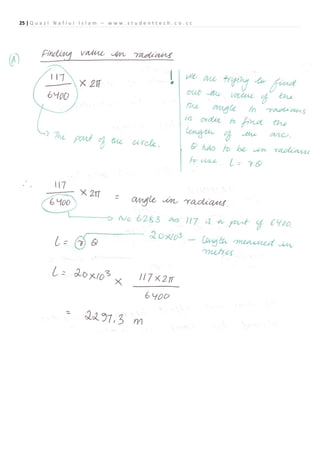 25 | Q u a z i N a f i u l I s l a m – w w w . s t u d e n t t e c h . c o . c c
(A)
Finding value in radians
117 / 6400 × 2π
! We are trying to find
out the value of the
the angle in radians
in order to find the
length of the arc.
θ has to be in radians
to use L = rθ
↳ The part of the circle.
∴ 117 / 6400 × 2π = angle in radians.
→ No 6283 as 117 is a part of 6400.
L = r θ
20×10³ – length measured in
metres
L = 20×10³ × 117×2π / 6400
= 2297.3 m